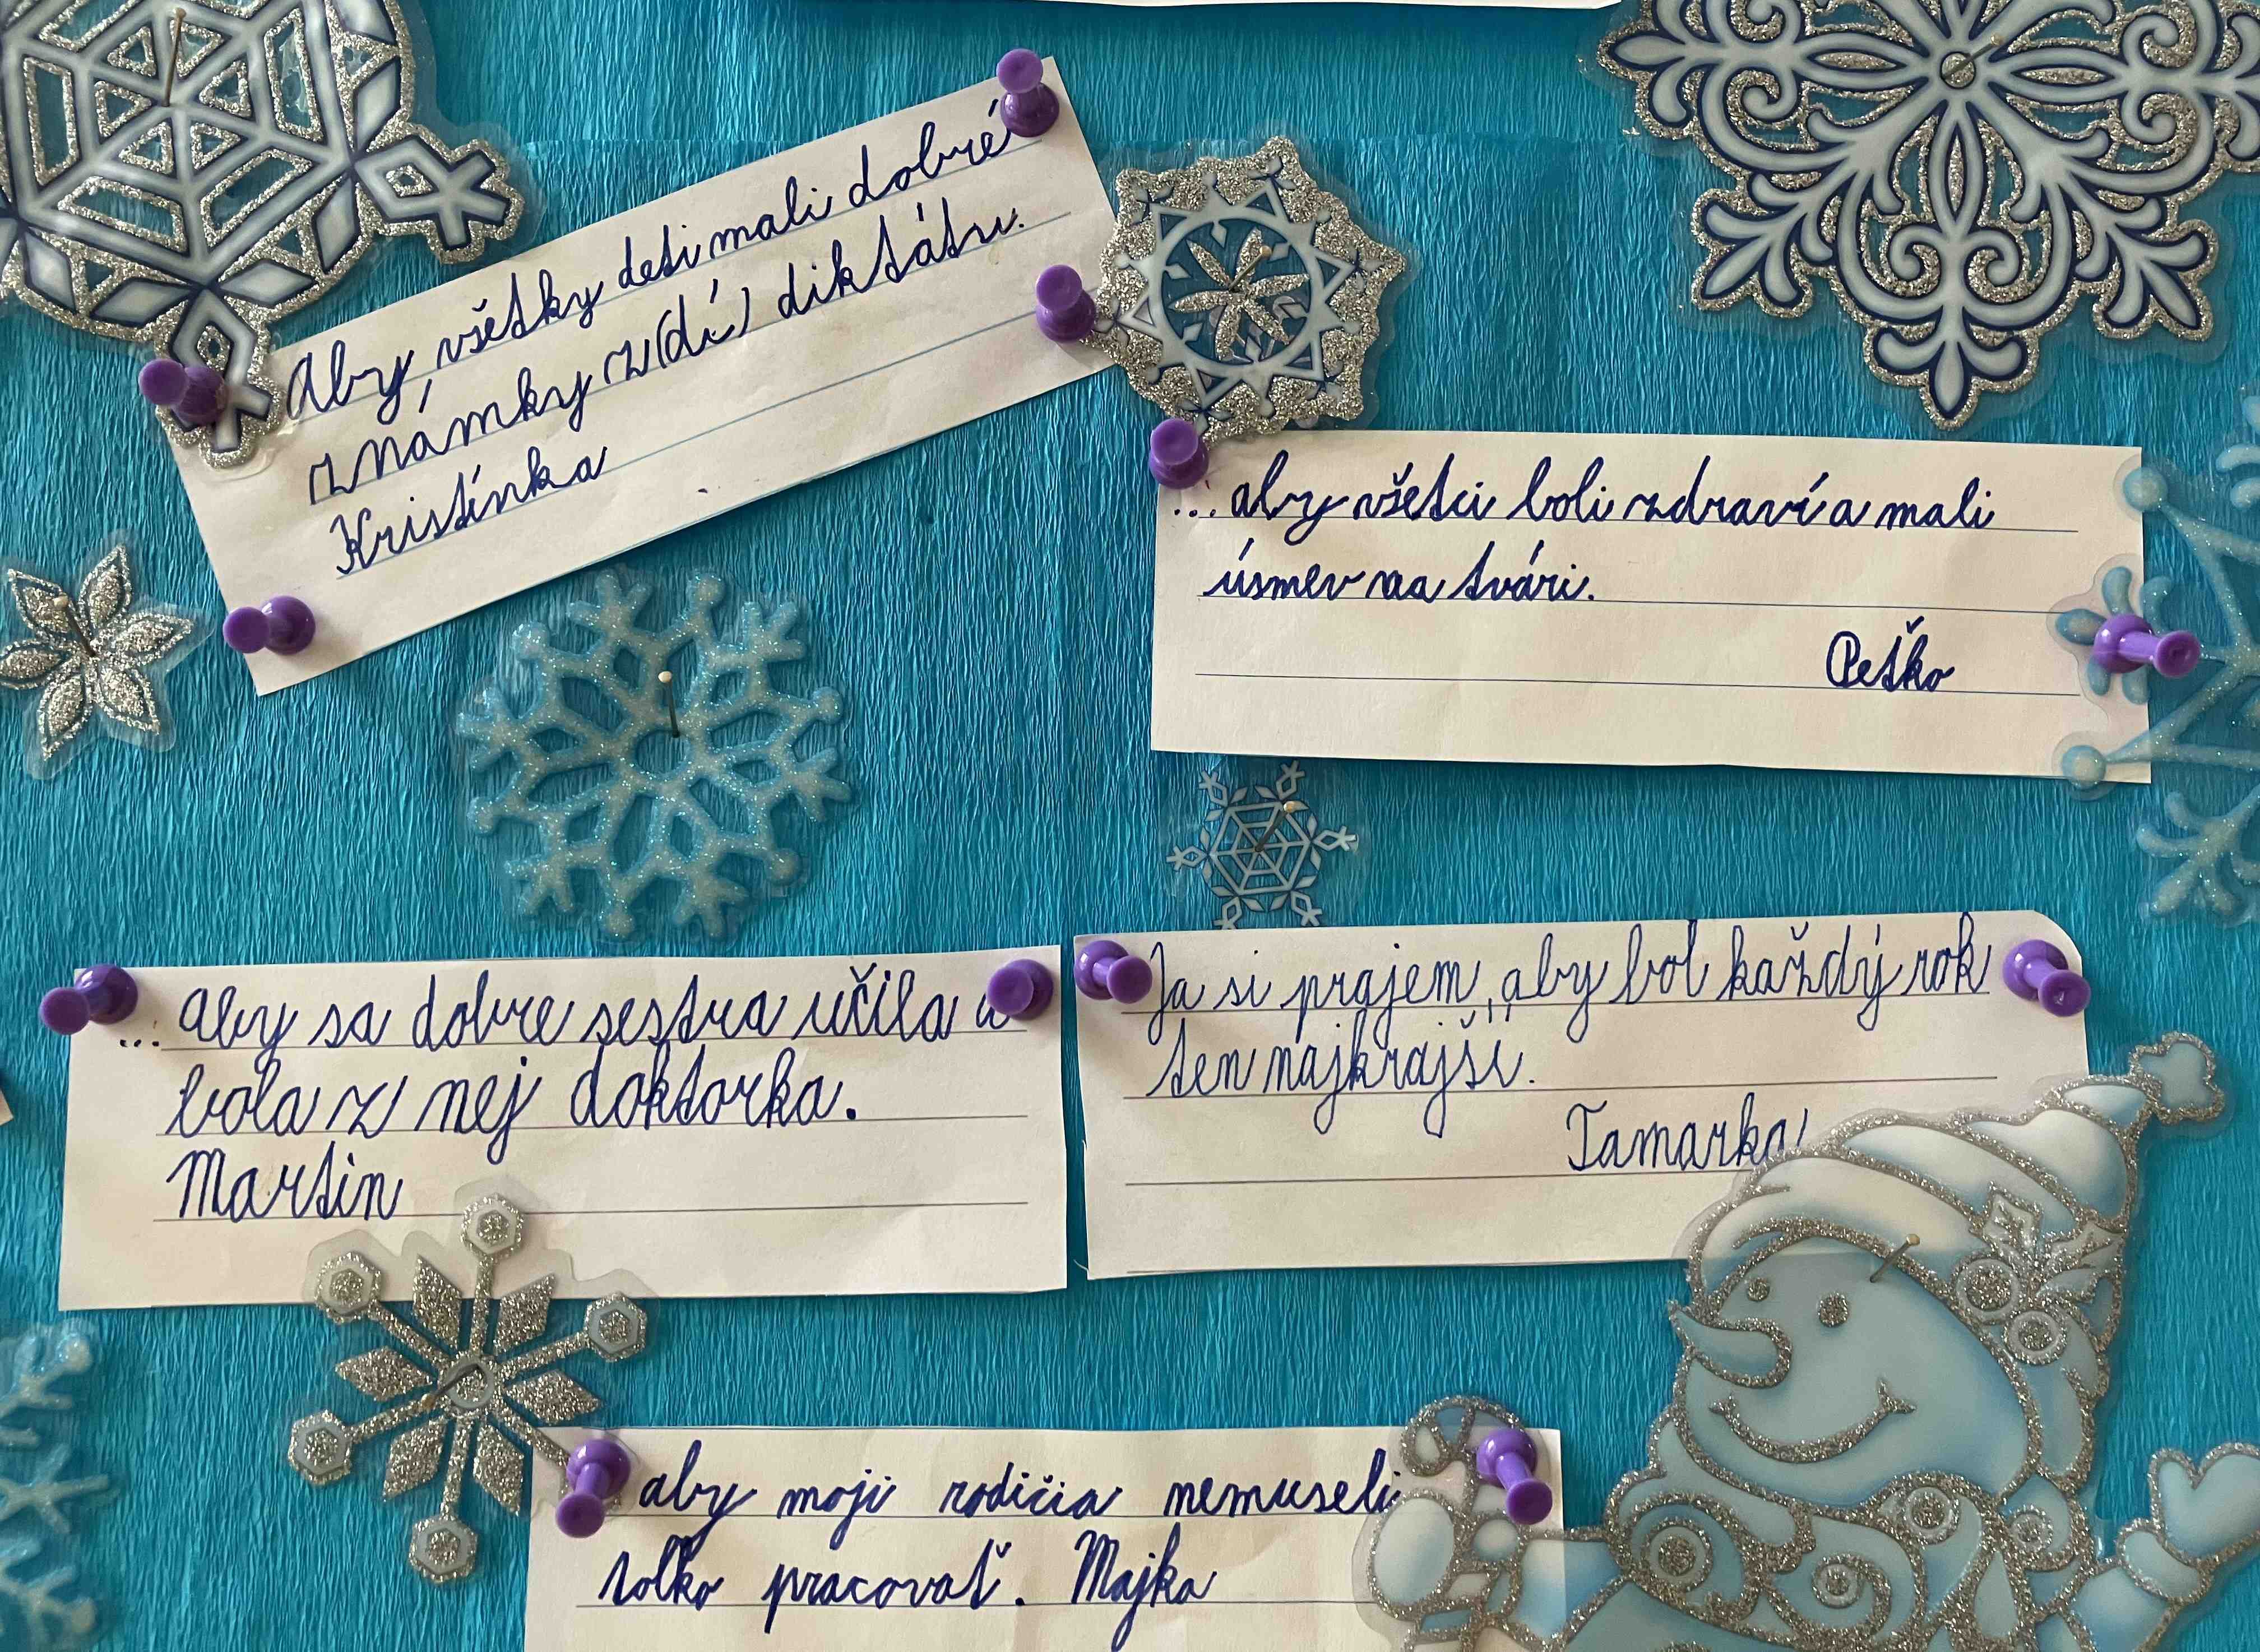 Aby, všetky deti mali dobré
známky z (di) diktátu.
Kristínka
... aby všetci boli zdraví a mali
úsmev na tvári.
Peťko
... aby sa dobre sestra učila a
bola z nej doktorka.
Martin
Ja si prajem, aby bol každý rok
ten najkrajší.
Tamarka
aby moji rodičia nemuseli
toľko pracovať. Majka